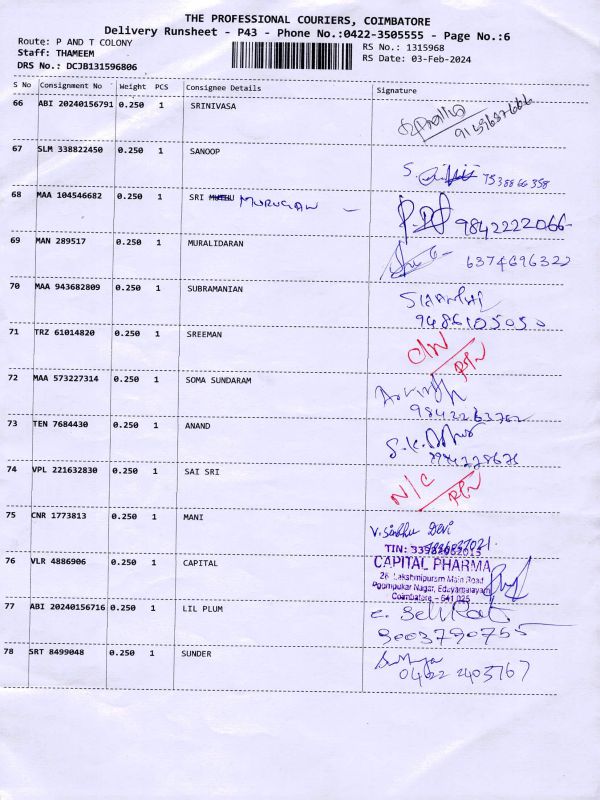 THE PROFESSIONAL COURIERS, COIMBATORE
Delivery Runsheet - P43 - Phone No.:0422-3505555 - Page No.:6
Route: P AND T COLONY
Staff: THAMEEM
DRS No.: DCJB131596806
RS No.: 1315968
RS Date: 03-Feb-2024
S No Consignment No Weight PCS Consignee Details Signature
66 ABI 20240156791 0.250 1 SRINIVASA
67 SLM 338822450 0.250 1 SANOOP
7538866358
68 MAA 104546682 0.250 1 SRI MUTHU MURUGAN
9842222066
69 MAN 289517 0.250 1 MURALIDARAN
6374696322
70 MAA 943682809 0.250 1 SUBRAMANIAN
9486105050
71 TRZ 61014820 0.250 1 SREEMAN
72 MAA 573227314 0.250 1 SOMA SUNDARAM
73 TEN 7684430 0.250 1 ANAND
74 VPL 221632830 0.250 1 SAI SRI
N/C
75 CNR 1773813 0.250 1 MANI
V. Sindhu Devi
76 VLR 4886906 0.250 1 CAPITAL
CAPITAL PHARMA
26 Lakshmipuram Main Road
Coimbatore - 641 025
77 ABI 20240156716 0.250 1 LIL PLUM
9003790755
78 SRT 8499048 0.250 1 SUNDER
0422 2403767